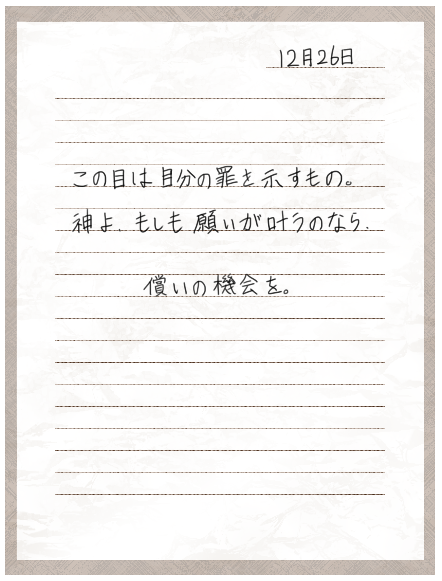 12月26日
この目は自分の罪を示すもの。
神よ、もしも願いが叶うのなら、
償いの機会を。